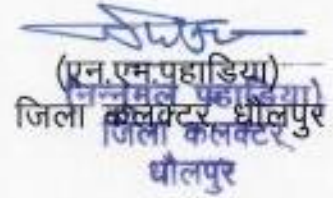 (एन.एम.पहाडिया)
(नन्नूमल पहाडिया)
जिला कलक्टर, धौलपुर
जिला कलक्टर
धौलपुर